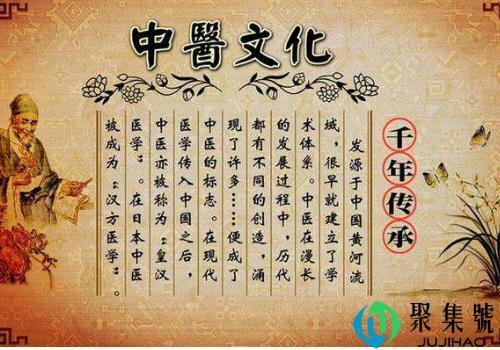 中醫文化
千年传承
发源于中国黄河流
域，很早就建立了学
术体系。中医在漫长
的发展过程中，历代
都有不同的创造，涌
现了许多……便成了
中医的标志。在现代
医学传入中国之后，
中医亦被称为“皇汉
医学”。在日本中医
被成为“汉方医学”。
聚集號
JUJIHAO